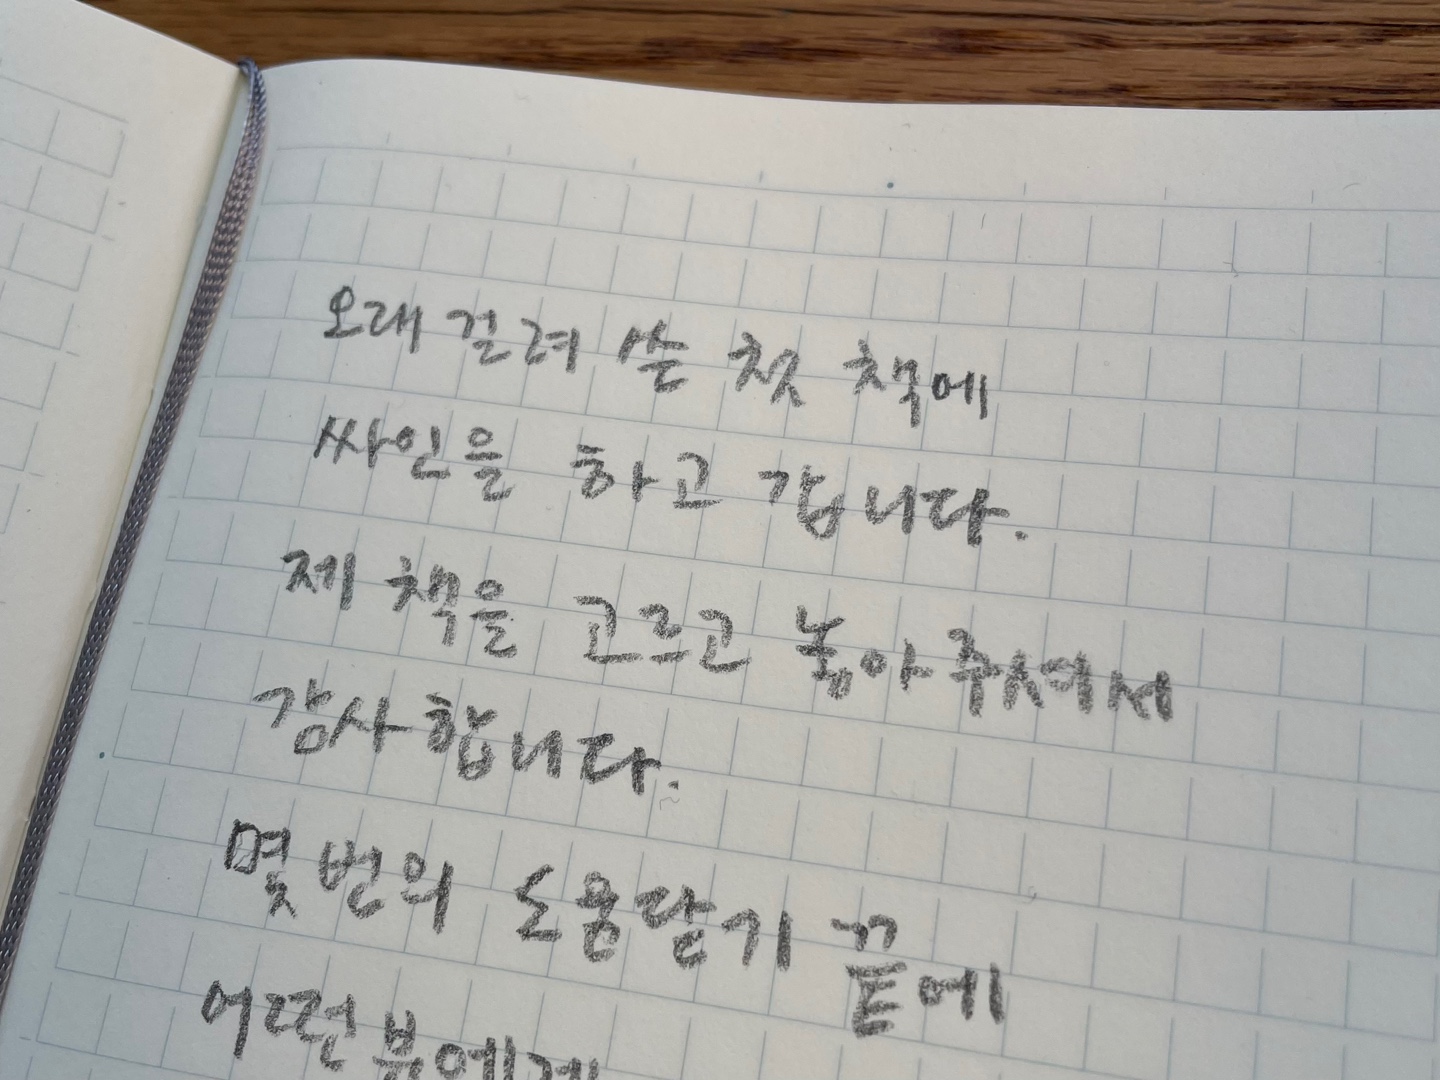 오래 걸려 쓴 첫 책에
싸인을 하고 갑니다.
제 책을 고르고 놓아 주셔서
감사합니다.
몇 번의 도움닫기 끝에
어떤 분에게